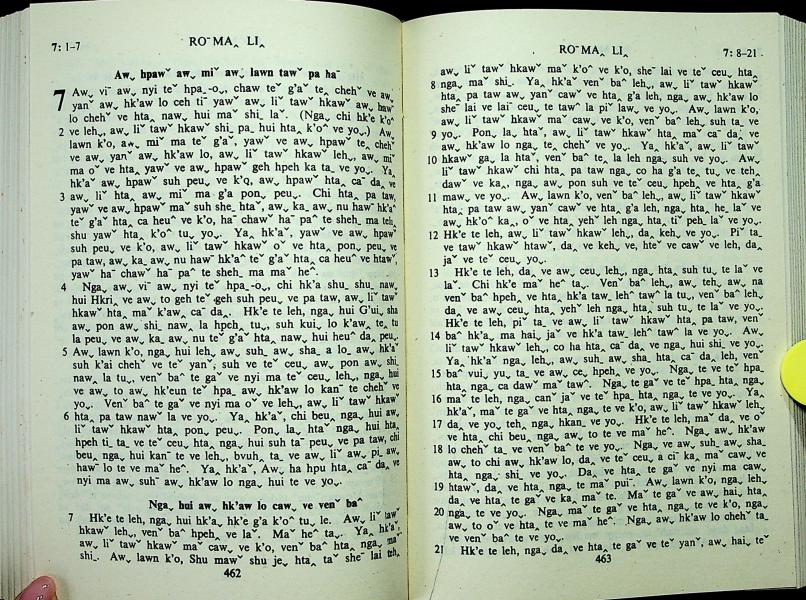 7: 1–7
RO˘ MA˰ LI˰
Aw˰ hpaw˘ aw˰ mi˘ aw˰ lawn taw˘ pa ha¯
7 Aw˰ vi¯ aw˰ nyi te˘ hpa˗-o˰, chaw te˘ g'a˘ te˰ cheh˘ ve aw˰
yan˘ aw˰ hk'aw lo ceh ti˘ yaw˘ aw˰ li˘ taw˘ hkaw˘ aw˰ hpaw˘
lo cheh˘ ve hta˰ naw˰ hui ma˘ shi˗ la˘. (Nga˰ chi hk'e k'o^
2 ve leh˰, aw˰ li˘ taw˘ hkaw˘ shi˗ pa˰ hui hta˰ k'o^ ve yo˰.) Aw˰
lawn k'o˰, aw˰ mi˘ ma te˘ g'a˘, yaw˘ ve aw˰ hpaw˘ te˰ cheh˘
ve aw˰ yan˘ aw˰ hk'aw lo, aw˰ li˘ taw˘ hkaw˘ leh˰, aw˰ mi˘
ma o˘ ve hta˰ yaw˘ ve aw˰ hpaw˘ geh hpeh ka ta˰ ve yo˰. Ya˰
hk'a˘ aw˰ hpaw˘ suh peu˰ ve k'o˰, aw˰ hpaw˘ hta˰ ca¯ da˰ ve
3 aw˰ li˘ hta˰ aw˰ mi˘ ma g'a pon˰ peu˰. Chi hta˰ pa taw˰
yaw˘ ve aw˰ hpaw˘ ma˘ suh she˗ hta˘, aw˰ ka˰ aw˰ nu haw¯ hk'a^
te˘ g'a˘ hta˰ ca heu^ ve k'o˰, ha¯ chaw˘ ha¯ pa^ te sheh˗ ma teh
shu yaw˘ hta˰ k'o^ tu˰ yo˰. Ya˰ hk'a˘, yaw˘ ve aw˰ hpaw˘
suh peu˰ ve k'o˰, aw˰ li˘ taw˘ hkaw˘ o˘ ve hta˰ pon˰ peu˰ ve
pa taw, aw˰ ka˰ aw˰ nu haw¯ hk'a^ te˘ g'a˘ hta˰ ca heu^ ve htaw˘,
yaw˘ ha¯ chaw˘ ha¯ pa^ te sheh˗ ma ma˘ he^.
4 Nga˰ aw˰ vi¯ aw˰ nyi te˘ hpa˗-o˰, chi hk'a shu˗ shu˗ naw˰
hui Hkri˰ ve aw˰ to geh te˘ geh suh peu˰ ve pa taw, aw˰ li˘ taw˘
hkaw˘ hta˰ ma˘ k'aw˰ ca¯ da˰. Hk'e te leh, nga˰ hui G'ui˰ sha
aw˰ pon aw˰ shi˗ naw˰ la hpeh˰ tu˰, suh kui˰ lo k'aw˰ te˰ tu
la peu˰ ve aw˰ ka˰ aw˰ nu te˘ g'a˘ hta˰ naw˰ hui heu^ da˰ peu˰.
5 Aw˰ lawn k'o˰, nga˰ hui leh˰ aw˰ suh˰ aw˰ sha˰ a lo˰ aw˰ hk'a˘
suh k'ai cheh˘ ve te˘ yan˘, suh˰ ve te˘ ceu˰ aw˰ pon aw˰ shi˗
naw˰ la tu˰, ven˘ ba^ te ga˘ ve nyi ma te˘ ceu˰ leh˰, nga˰ hui
ve aw˰ to aw˰ hk'eun te˘ hpa˰ aw˰ hk'aw lo kan¯ te cheh˘ ve
yo˰. Ven˘ ba^ te ga˘ ve nyi ma o˘ ve leh˰, aw˰ li˘ taw˘ hkaw˘
6 hta˰ pa taw naw˘ la ve yo˰. Ya˰ hk'a˘, chi beu˰ nga˰ hui aw˰
li˘ taw˘ hkaw˘ hta˰ pon˰ peu˰. Pon˰ la˰ hta˘ nga˰ hui hta˰
hpeh ti˗ ta˰ ve te˘ ceu˰ hta˰ nga˰ hui suh ta¯ peu˰ ve pa taw, chi
beu˰ nga˰ hui kan¯ te ve leh˰, bvuh˰ ta˰ ve aw˰ li˘ aw˰ pi˰ aw˰
haw^ lo te ve ma˘ he^. Ya˰ hk'a˘, Aw˰ ha hpu hta˰ ca¯ da˰ ve
nyi ma aw˰ suh¯ aw˰ hk'aw lo nga˰ hui te ve yo˰.
Nga˰ hui aw˰ hk'aw lo caw˰ ve ven˘ ba^
7 Hk'e te leh, nga˰ hui hk'a˰ hk'e g'a k'o^ tu˰ le. Aw˰ li˘ taw˘
hkaw˘ leh˰, ven˘ ba^ hpeh^ ve la˘. Ma˘ he^ ta˰. Ya˰ hk'a˘,
aw˰ li˘ taw˘ hkaw˘ ma˘ caw˰ ve k'o˰, ven˘ ba^ hta˰ nga˰ ma˘
shi˗. Aw˰ lawn k'o˰, Shu maw˘ shu je˰ hta˰ ta˘ she¯ lai teh˰
462
RO˘ MA˰ LI˰
7: 8–21
aw˰ li˘ taw˘ hkaw˘ ma˘ k'o^ ve k'o˰, she¯ lai ve te˘ ceu˰ hta˰
8 nga˰ ma˘ shi˗. Ya˰ hk'a˘ ven˘ ba^ leh˰, aw˰ li˘ taw˘ hkaw˘
hta˰ pa taw aw˰ yan˘ caw˘ ve hta˰ g'a leh, nga˰ aw˰ hk'aw lo
she¯ lai ve lai¯ ceu˰ te taw^ la pi˘ law˰ ve yo˰. Aw˰ lawn k'o˰,
aw˰ li˘ taw˘ hkaw˘ ma˘ caw˰ ve k'o˰, ven˘ ba^ leh˰ suh ta˰ ve
9 yo˰. Pon˰ la˰ hta˘, aw˰ li˘ taw˘ hkaw˘ hta˰ ma˘ ca¯ da˰ ve
aw˰ hk'aw lo nga˰ te˰ cheh˘ ve yo˰. Ya˰ hk'a˘, aw˰ li˘ taw˘
10 hkaw˘ ga˰ la hta˘, ven˘ ba^ te˰ la leh nga˰ suh ve yo˰. Aw˰
li˘ taw˘ hkaw˘ chi hta˰ pa taw nga˰ co ha g'a te˰ tu˰ ve teh˰
daw˘ ve ka˰, nga˰ aw˰ pon suh ve te˘ ceu˰ hpeh˰ ve hta˰ g'a
11 maw˰ ve yo˰. Aw˰ lawn k'o˰, ven˘ ba^ leh˰, aw˰ li˘ taw˘ hkaw˘
hta˰ pa taw aw˰ yan˘ caw˘ ve hta˰ g'a leh, nga˰ hta˰ he˰ la˘ ve
aw˰ hk'o^ ka˰, o˘ ve hta˰ yeh˘ leh nga˰ hta˰ ti˘ peh˰ la˘ ve yo˰.
12 Hk'e te leh, aw˰ li˘ taw˘ hkaw˘ leh˰, da˰ keh˰ ve yo˰. Pi˘ ta˰
ve taw˘ hkaw˘ htaw˘, da˰ keh˰ ve, hte˘ ve caw˘ ve leh, da˰
ja˘ ve te˘ ceu˰ yo˰.
13 Hk'e te leh, da˰ ve aw˰ ceu˰ leh˰, nga˰ hta˰ suh tu˰ te la˘ ve
la˘. Chi hk'e ma˘ he^ ta˰. Ven˘ ba^ leh˰, aw˰ teh˰ aw˰ na
ven˘ ba^ hpeh˰ ve hta˰ hk'a taw˰ leh^ taw^ la tu˰, ven˘ ba^ leh˰
da˰ ve aw˰ ceu˰ hta˰ yeh˘ leh nga˰ hta˰ suh tu˰ te la˘ ve yo˰.
Hk'e te leh, pi˘ ta˰ ve aw˰ li˘ taw˘ hkaw˘ hta˰ pa taw, ven˘
14 ba^ hk'a˰ ma hai˰ ja˘ ve hk'a taw˰ leh^ taw^ la ve yo˰. Aw˰
li˘ taw˘ hkaw˘ leh˰, co ha hta˰ ca¯ da˰ ve nga˰ hui shi˗ ve yo˰.
Ya˰ hk'a˘ nga˰ leh˰, aw˰ suh˰ aw˰ sha˰ hta˰ ca¯ da˰ leh, ven˘
15 ba^ vui˰ yu˰ ta˰ ve aw˰ ce˰ hpeh˰ ve yo˰. Nga˰ te ve te˘ hpa˰
hta˰ nga˰ ca daw˘ ma˘ taw^. Nga˰ te ga˘ ve te˘ hpa˰ hta˰ nga˰
16 ma˘ te leh, nga˰ can^ ja˘ ve te˘ hpa˰ hta˰ nga˰ te ve yo˰. Ya˰
hk'a˘, ma˘ te ga˘ ve hta˰ nga˰ te ve k'o˰, aw˰ li˘ taw˘ hkaw˘ leh˰
17 da˰ ve yo˰ teh˰ nga˰ hkan˰ ve yo˰. Hk'e te leh, ma˘ da˰ ve o˘
ve hta˰ chi beu˰ nga˰ aw˰ to te ve ma˘ he^. Nga˰ aw˰ hk'aw
18 lo cheh˘ ta˰ ve ven˘ ba^ te ve yo˰. Nga˰ ve aw˰ suh˰ aw˰ sha˰
aw˰ to chi aw˰ hk'aw lo, da˰ ve te˘ ceu˰ a ci¯ ka˰ ma˘ caw˰ ve
hta˰ nga˰ shi˗ ve yo˰. Da˰ ve hta˰ te ga˘ ve nyi ma caw˰
19 htaw˘, da˰ ve hta˰ nga˰ te ma˘ pui¯. Aw˰ lawn k'o˰, nga˰ leh˰
da˰ ve hta˰ te ga˘ ve ka˰ ma˘ te. Ma˘ te ga˘ ve aw˰ hai˰ hta˰
20 nga˰ te ve yo˰. Nga˰ ma˘ te ga˘ ve hta˰ nga˰ te ve k'o˰, nga˰
aw˰ to o˘ ve hta˰ te ve ma˘ he^. Nga˰ aw˰ hk'aw lo cheh˘ ta˰
ve ven˘ ba^ te ve yo˰.
21 Hk'e te leh, nga˰ da˰ ve hta˰ te ga˘ ve te˘ yan˘, aw˰ hai˰ te˘
463